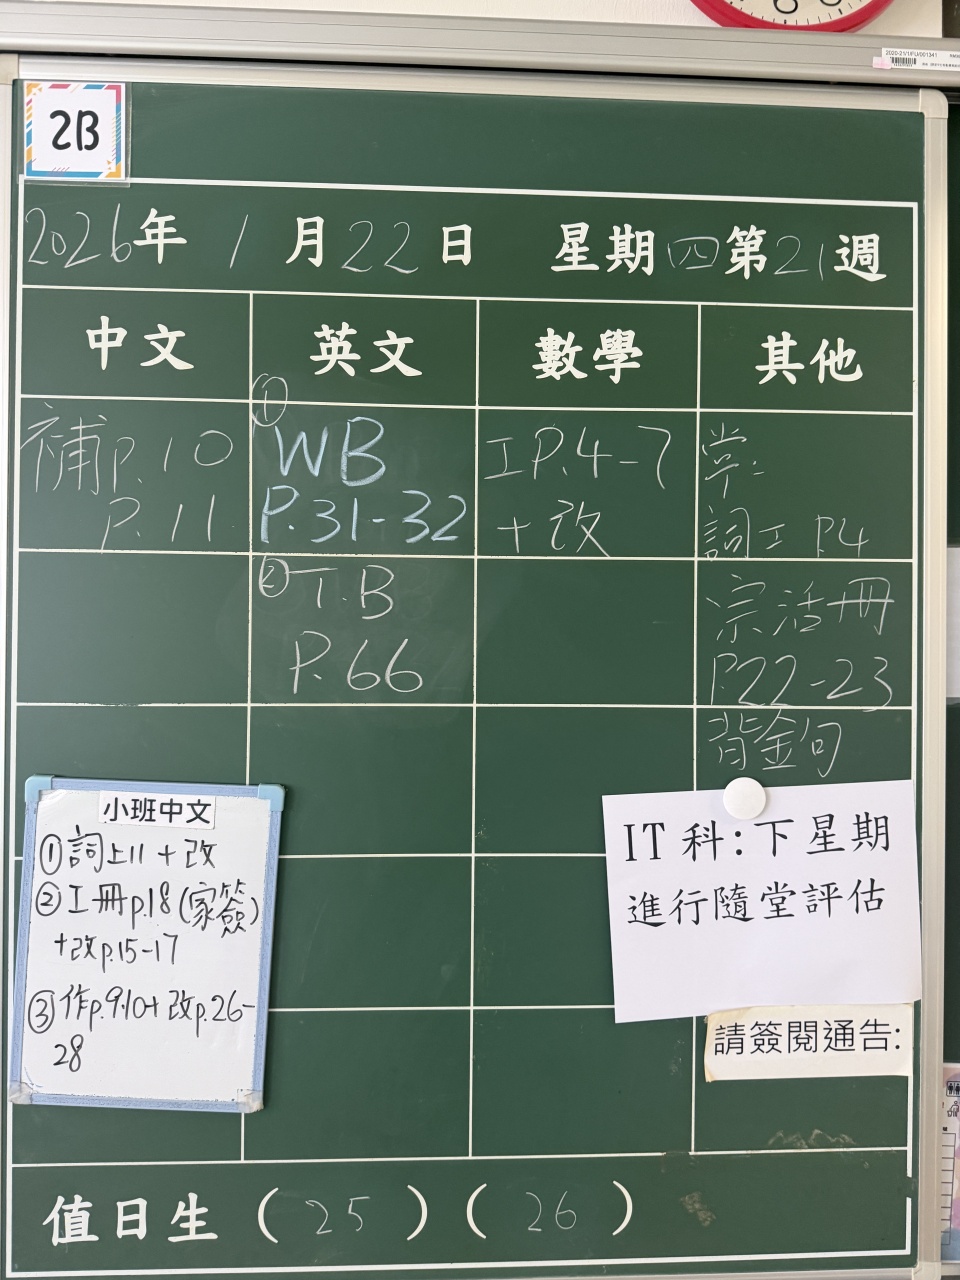 2020-21/1/FU/001341
2B
2026年1月22日 星期四第21週
中文 英文 數學 其他
補p.10
p.11
①
WB
P.31-32
工P.4-7
+改
常:
詞工 P.4
②T.B
P.66
宗活冊
P.22-23
背金句
小班中文
①詞上11+改
②工冊p.18(家簽)
+改p.15-17
③作p.9,10+改p.26-
28
IT科:下星期
進行隨堂評估
請簽閱通告:
值日生(25)(26)